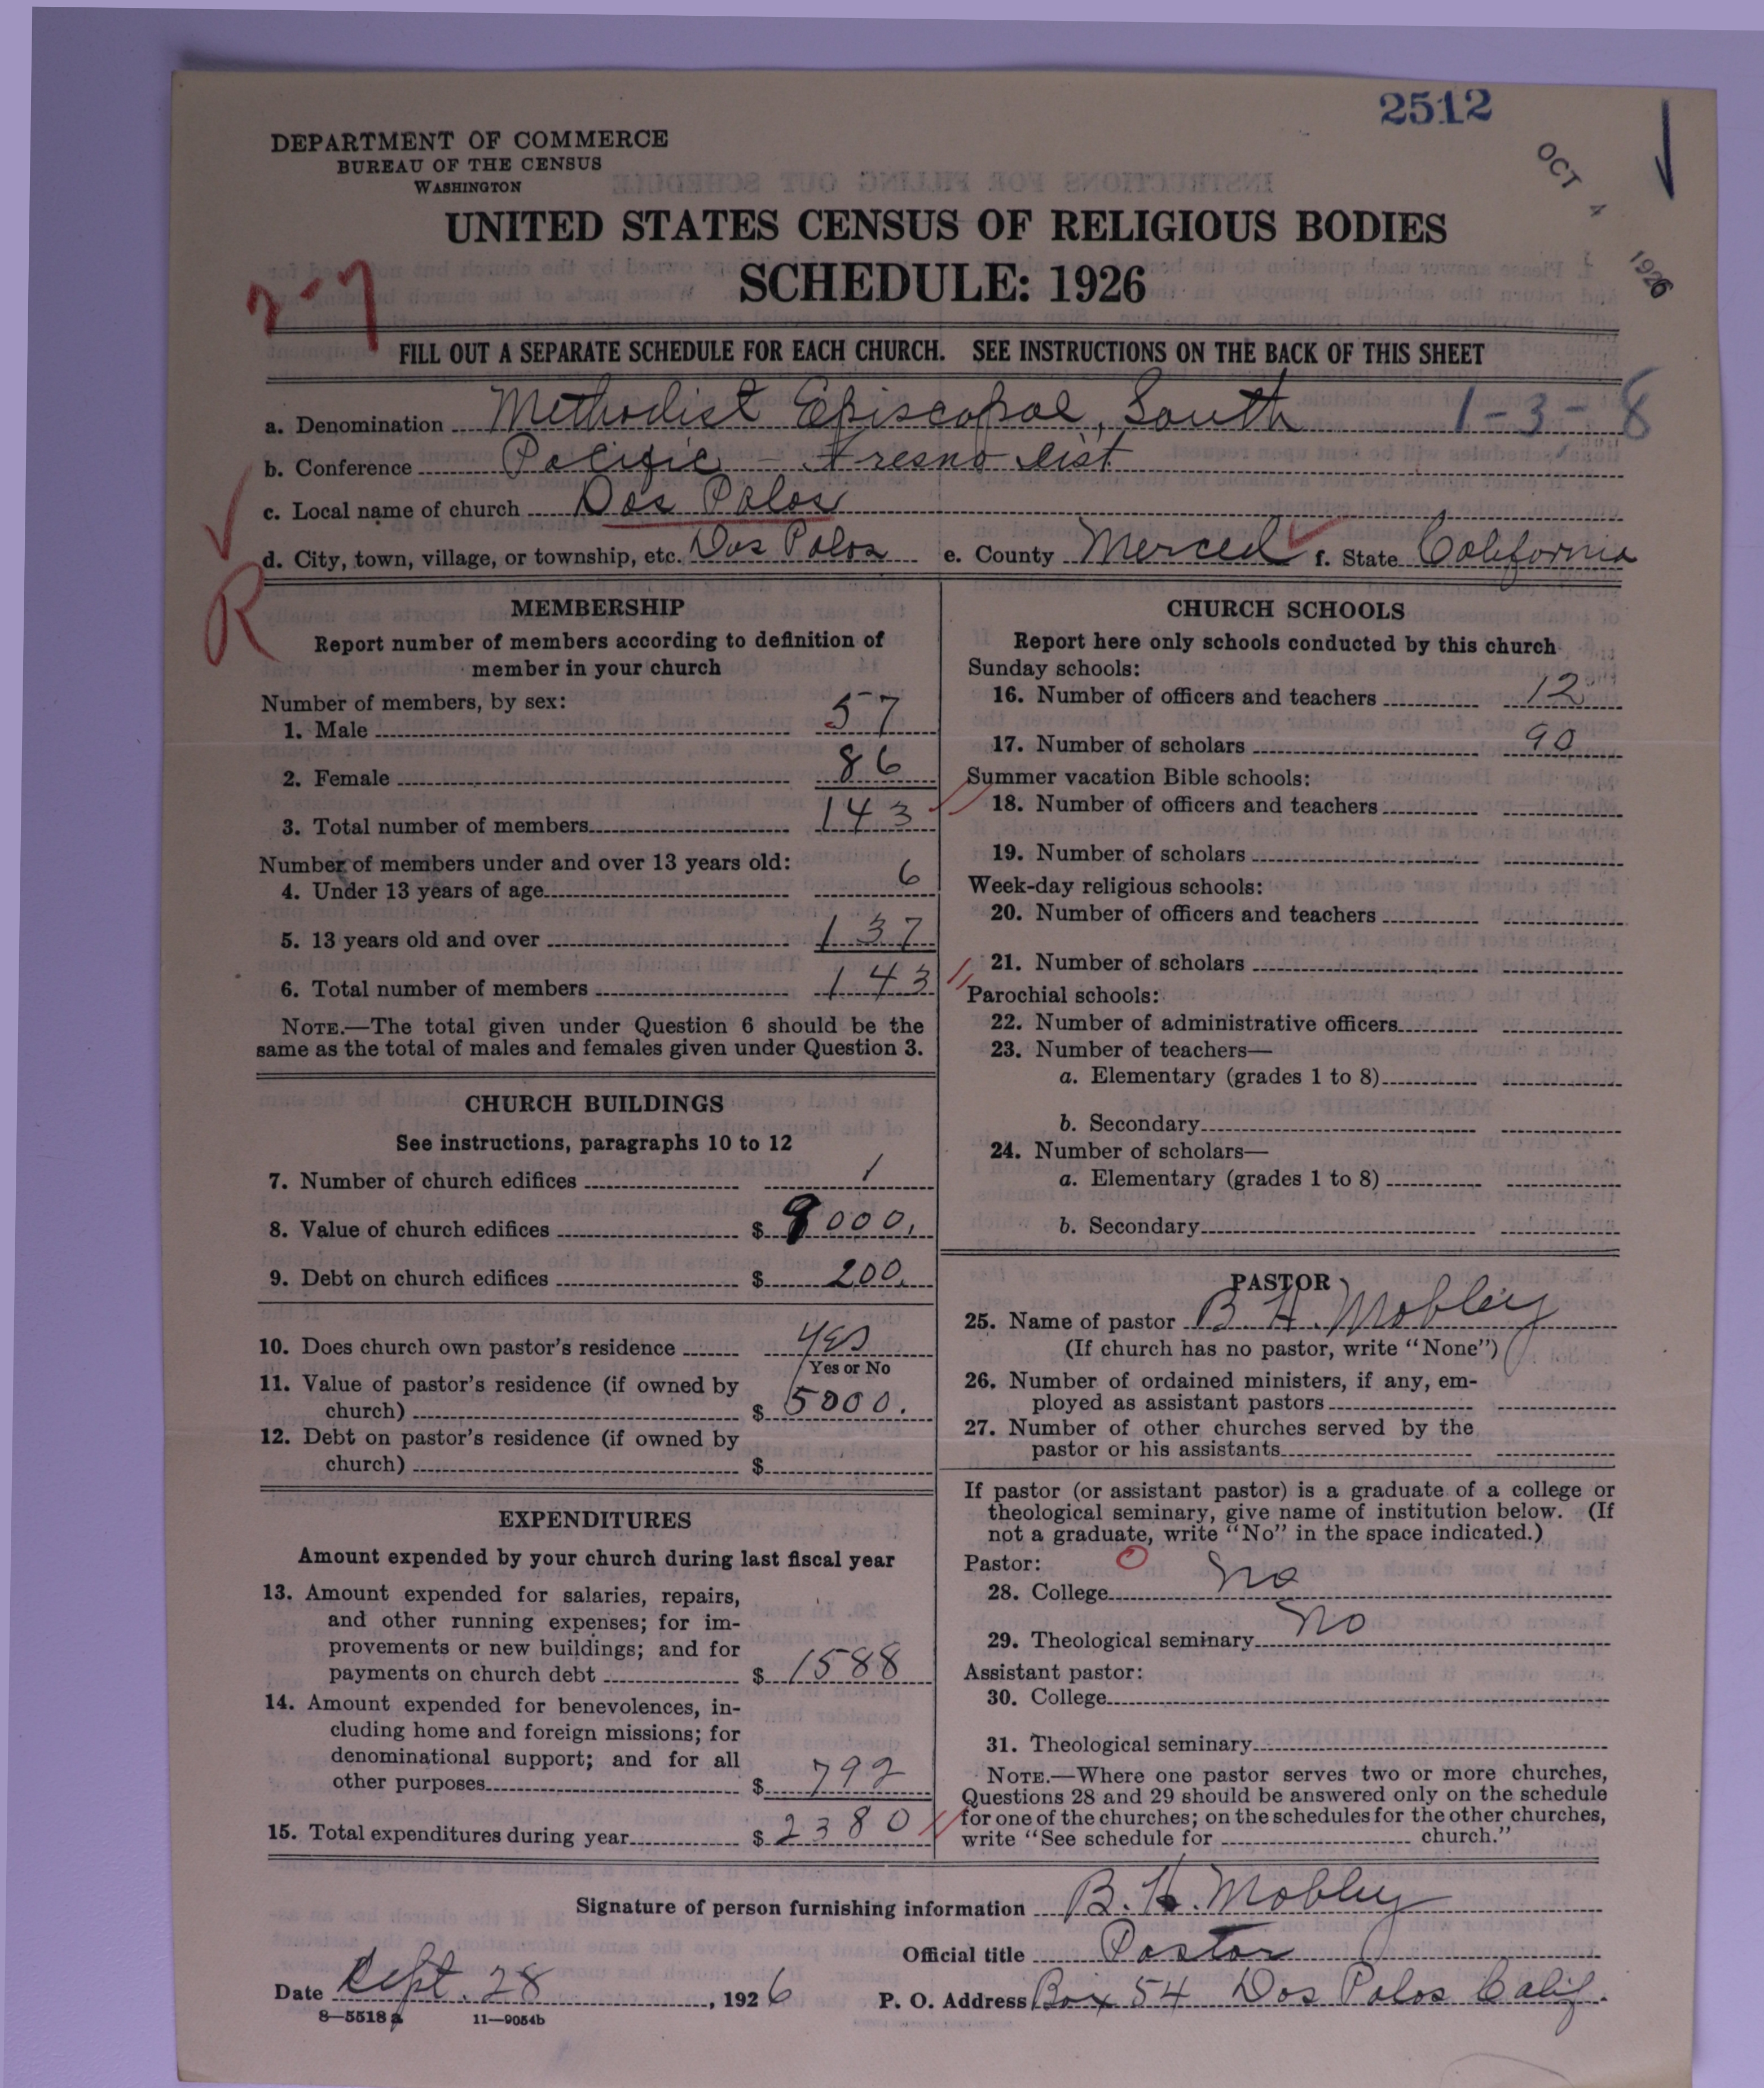 2512
DEPARTMENT OF COMMERCE
BUREAU OF THE CENSUS
WASHINGTON
OCT 4 1926
UNITED STATES CENSUS OF RELIGIOUS BODIES
SCHEDULE: 1926
FILL OUT A SEPARATE SCHEDULE FOR EACH CHURCH. SEE INSTRUCTIONS ON THE BACK OF THIS SHEET
a. Denomination Methodist Episcopal, South 1-3-8
b. Conference Pacific - Fresno Dist
c. Local name of church Dos Palos
d. City, town, village, or township, etc. Dos Palos e. County Merced f. State California
R
MEMBERSHIP
Report number of members according to definition of
member in your church
Number of members, by sex:
1. Male 57
2. Female 86
3. Total number of members 143
Number of members under and over 13 years old:
4. Under 13 years of age 6
5. 13 years old and over 137
6. Total number of members 143
NOTE.—The total given under Question 6 should be the
same as the total of males and females given under Question 3.
CHURCH BUILDINGS
See instructions, paragraphs 10 to 12
7. Number of church edifices 1
8. Value of church edifices $ 000.
9. Debt on church edifices $ 200.
10. Does church own pastor's residence Yes
Yes or No
11. Value of pastor's residence (if owned by
church) $ 5000.
12. Debt on pastor's residence (if owned by
church) $
EXPENDITURES
Amount expended by your church during last fiscal year
13. Amount expended for salaries, repairs,
and other running expenses; for im-
provements or new buildings; and for
payments on church debt $ 1588
14. Amount expended for benevolences, in-
cluding home and foreign missions; for
denominational support; and for all
other purposes $ 792
15. Total expenditures during year $ 2380
CHURCH SCHOOLS
Report here only schools conducted by this church
Sunday schools:
16. Number of officers and teachers 12
17. Number of scholars 90
Summer vacation Bible schools:
18. Number of officers and teachers
19. Number of scholars
Week-day religious schools:
20. Number of officers and teachers
21. Number of scholars
Parochial schools:
22. Number of administrative officers
23. Number of teachers—
a. Elementary (grades 1 to 8)
b. Secondary
24. Number of scholars—
a. Elementary (grades 1 to 8)
b. Secondary
PASTOR
25. Name of pastor B. H. Mobley
(If church has no pastor, write "None")
26. Number of ordained ministers, if any, em-
ployed as assistant pastors
27. Number of other churches served by the
pastor or his assistants
If pastor (or assistant pastor) is a graduate of a college or
theological seminary, give name of institution below. (If
not a graduate, write "No" in the space indicated.)
Pastor:
28. College No
29. Theological seminary No
Assistant pastor:
30. College
31. Theological seminary
NOTE.—Where one pastor serves two or more churches,
Questions 28 and 29 should be answered only on the schedule
for one of the churches; on the schedules for the other churches,
write "See schedule for church."
Signature of person furnishing information B. H. Mobley
Official title Pastor
Date Sept. 28, 1926 P. O. Address Box 54 Dos Palos Calif.
8—5518 a 11—9054b